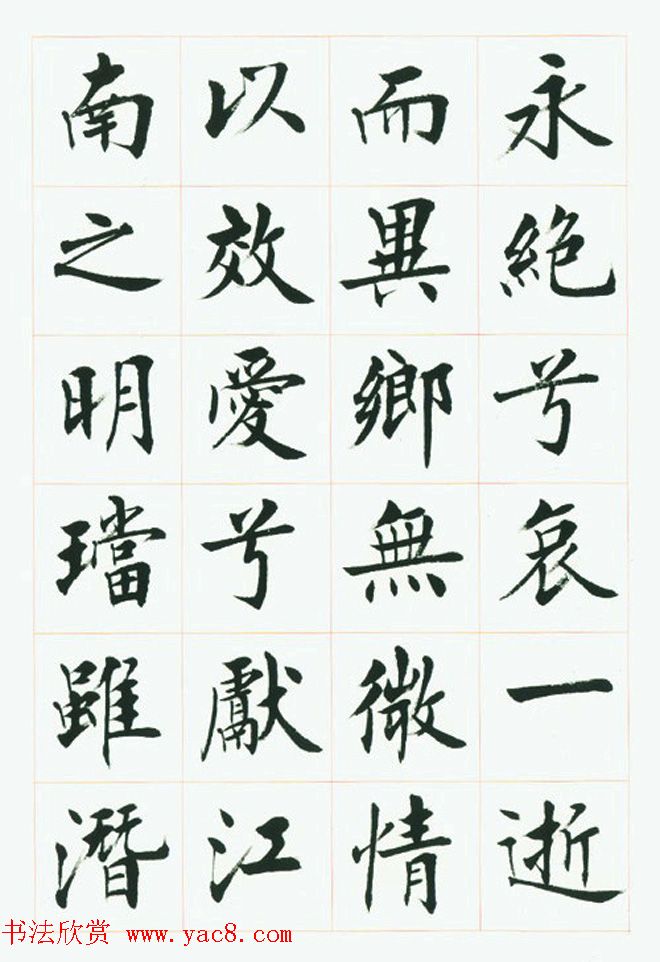 永絶兮哀一逝
而異鄉無微情
以效愛兮獻江
南之明璫雖潛
书法欣赏 www.yac8.com